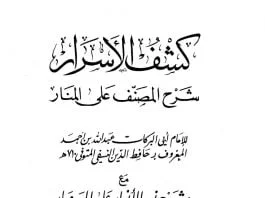 كشف الأسرار
شرح المصنف على المنار
للإمام أبي البركات عبد الله بن أحمد
المعروف بحافظ الدين النسفي المتوفى ٧١٠ هـ
مع